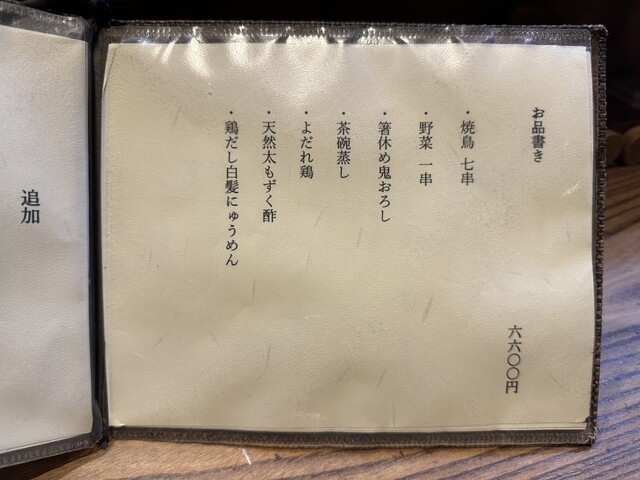 お品書き
六六〇〇円
・焼鳥 七串
・野菜 一串
・箸休め鬼おろし
・茶碗蒸し
・よだれ鶏
・天然太もずく酢
・鶏だし白髪にゅうめん
追加